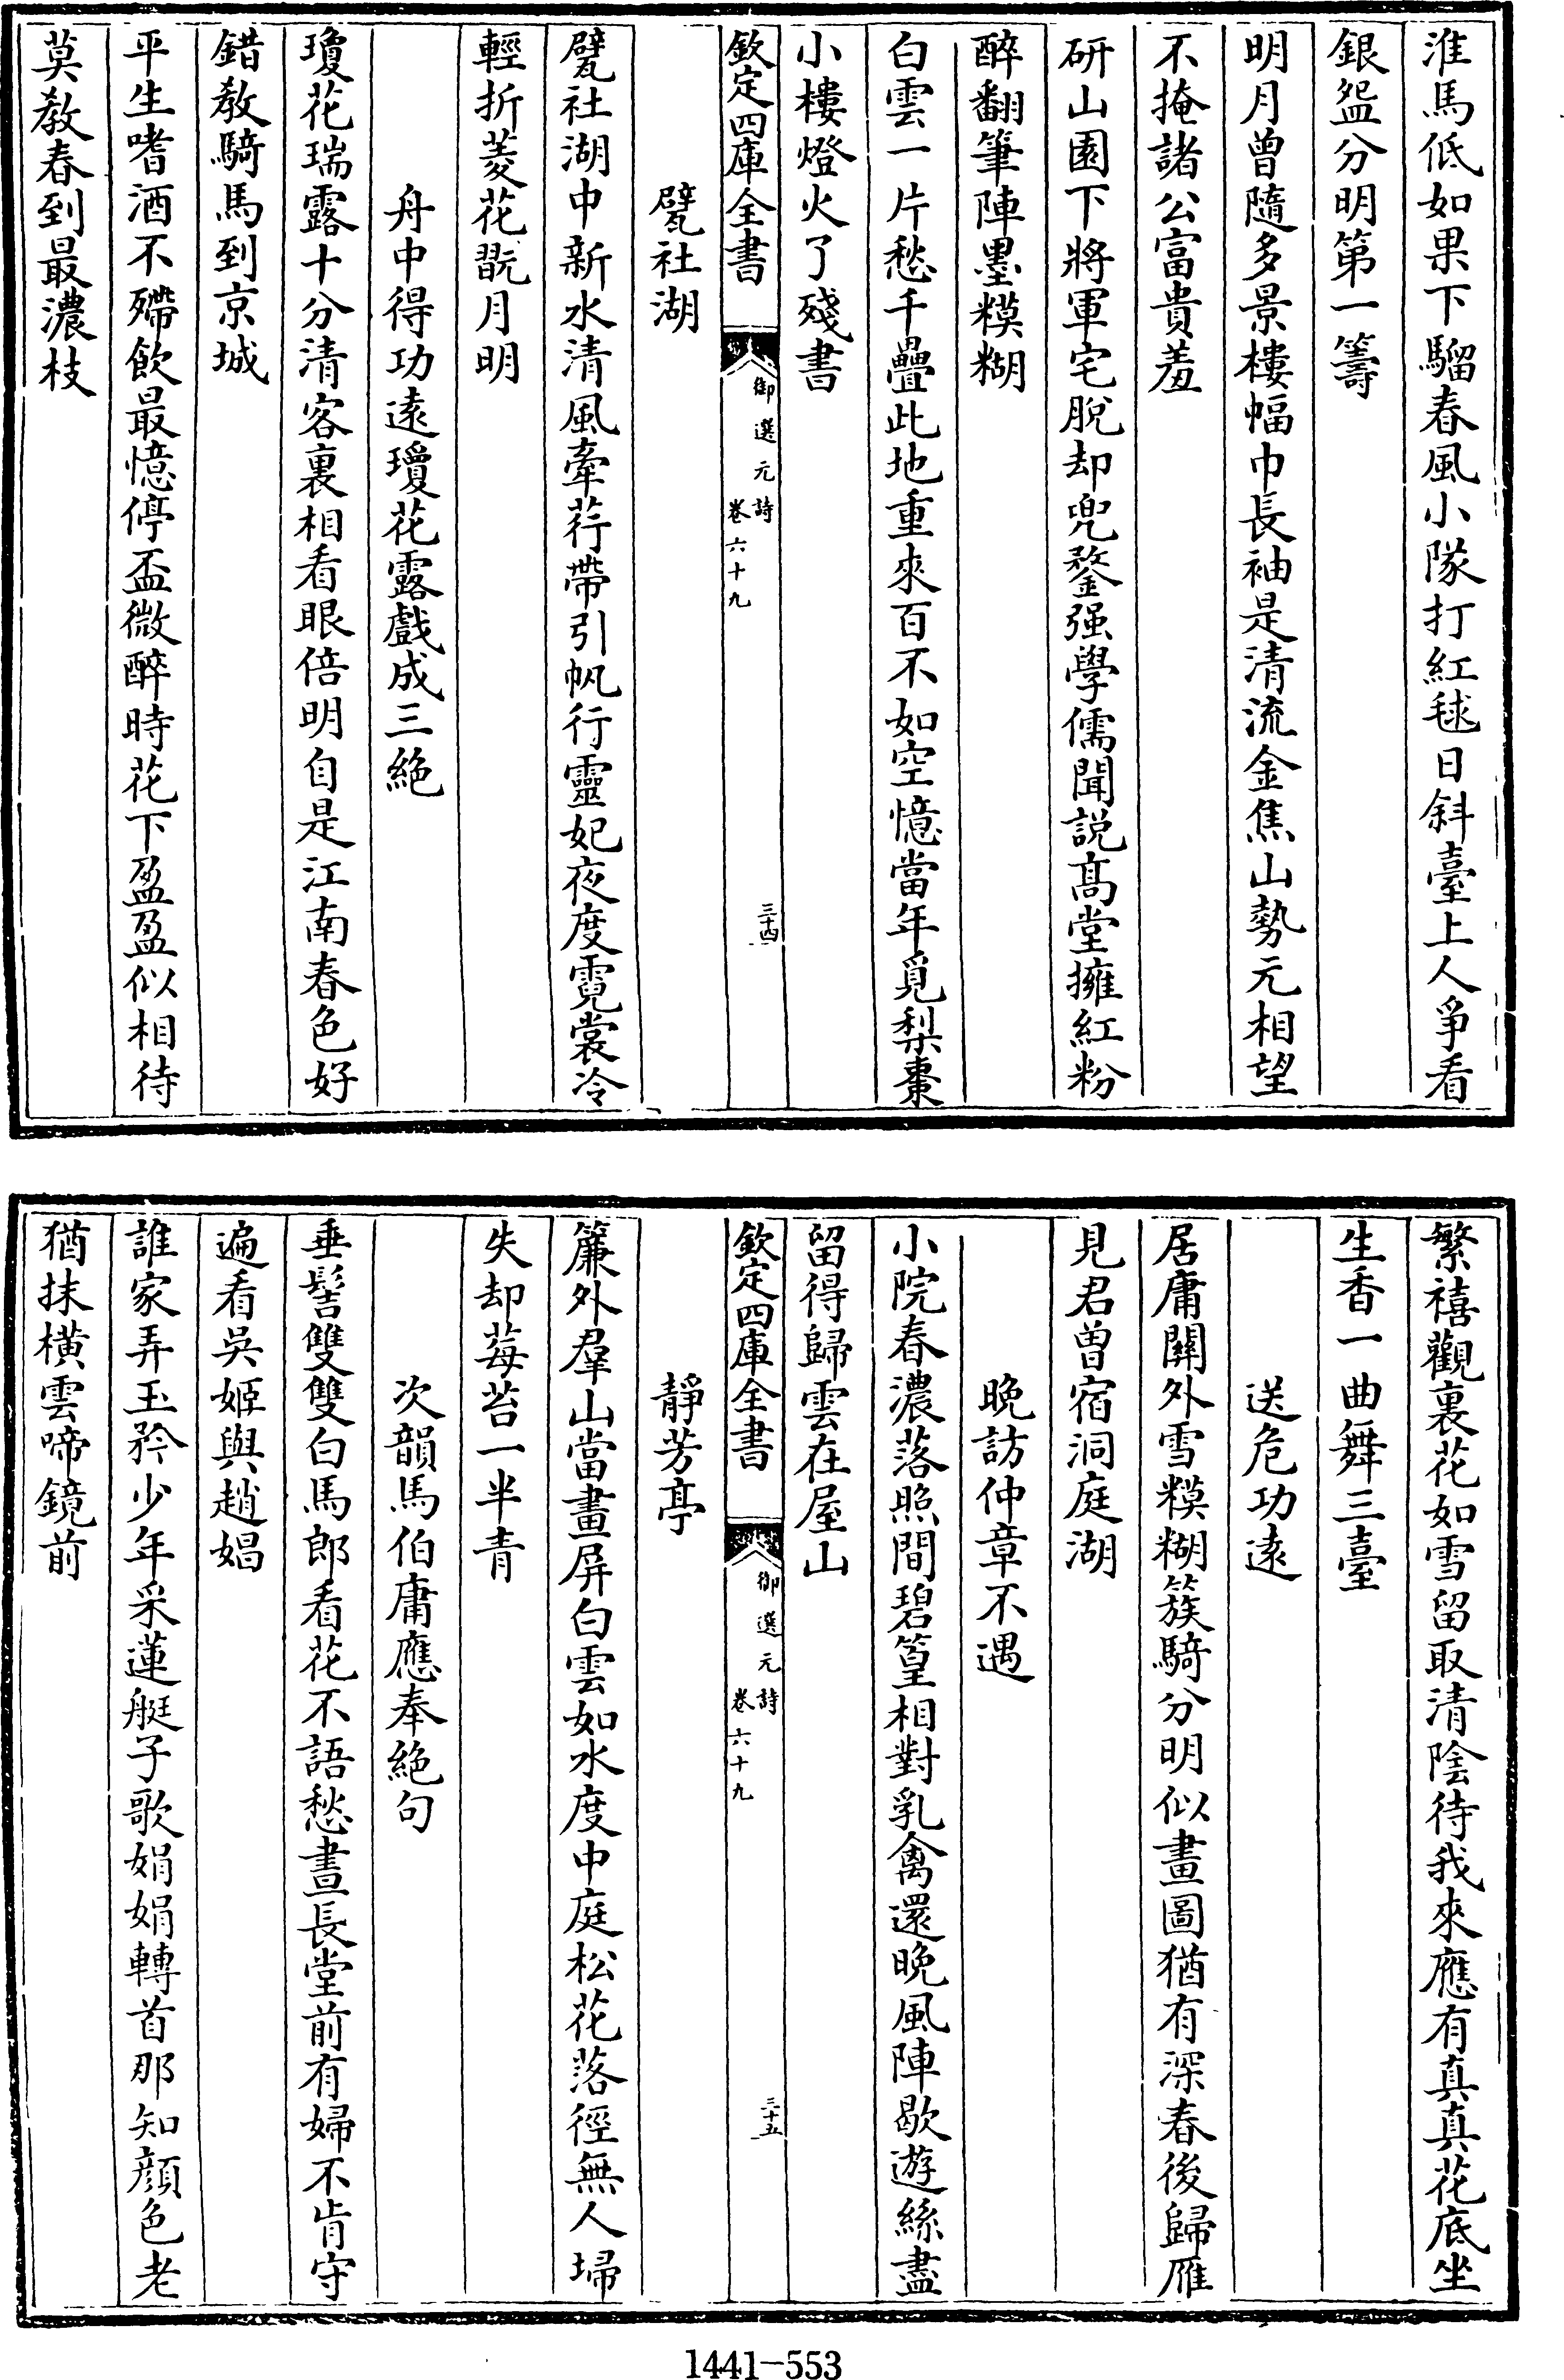 淮馬低如果下騮春風小隊打紅毬日斜臺上人爭看
銀盌分明第一籌
明月曾隨多景樓幅巾長袖是清流金焦山勢元相望
不掩諸公富貴羞
研山園下將軍宅脫却兜鍪强學儒聞説髙堂擁紅粉
醉翻筆陣墨糢糊
白雲一片愁千疊此地重來百不如空憶當年覓梨棗
小樓燈火了殘書
欽定四庫全書
御選元詩
卷六十九
三十四
甓社湖
甓社湖中新水清風牽荇帶引帆行靈妃夜度霓裳冷
輕折菱花翫月明
舟中得功逺瓊花露戲成三絶
瓊花瑞露十分清客裏相看眼倍明自是江南春色好
錯教騎馬到京城
平生嗜酒不殢飲最憶停盃微醉時花下盈盈似相待
莫教春到最濃枝
繁禧觀裏花如雪留取清陰待我來應有真真花底坐
生香一曲舞三臺
送危功逺
居庸關外雪糢糊簇騎分明似畫圖猶有深春後歸雁
見君曾宿洞庭湖
晩訪仲章不遇
小院春濃落照間碧篁相對乳禽還晩風陣歇遊絲盡
留得歸雲在屋山
欽定四庫全書
御選元詩
卷六十九
三十五
靜芳亭
簾外羣山當畫屏白雲如水度中庭松花落徑無人埽
失却莓苔一半青
次韻馬伯庸應奉絶句
垂髻雙雙白馬郎看花不語愁晝長堂前有婦不肯守
遍看吳姬與趙娼
誰家弄玉矜少年采蓮艇子歌娟娟轉首那知顔色老
猶抹橫雲啼鏡前
1441—553